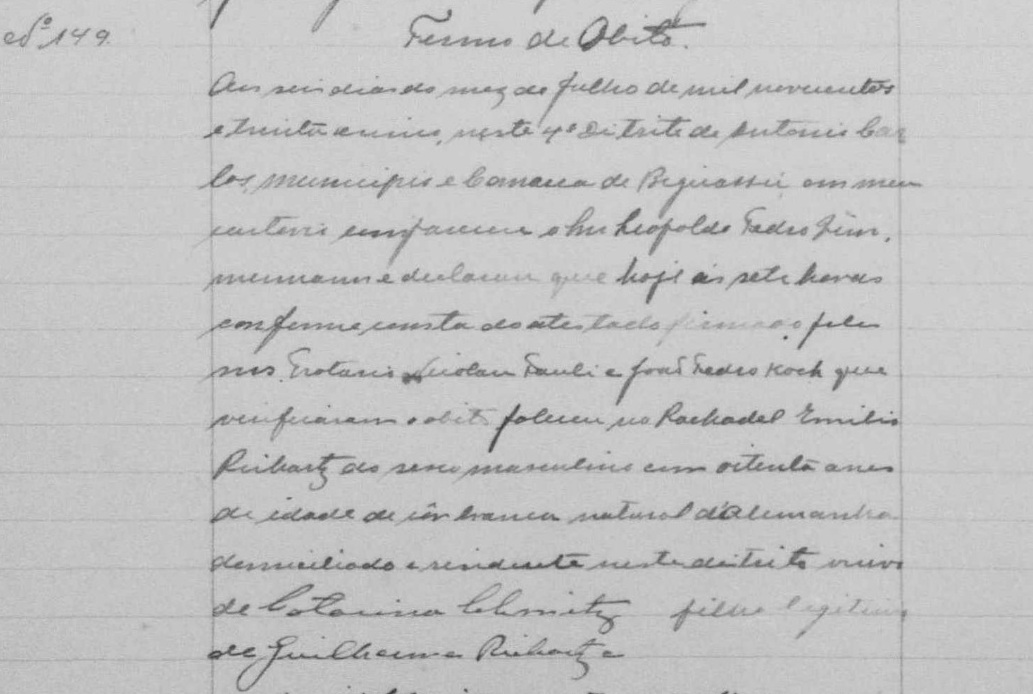 Nº 149.
Termo de Obito.
Aos seis dias do mez de Julho de mil novecentos
e trinta e cinco, neste 4º Distrito de Antonio Car
los, municipio e Comarca de Biguassú em meu
cartorio compareceu o Snr Leopoldo Pedro Zim.
mermann e declarou que hoje ás sete horas
conforme consta do atestado firmado pelos
snrs. Nicolau Pauli e João Pedro Koch que
verificaram o obito faleceu no Rachadel Emilio
Richartz do sexo masculino com oitenta anos
de idade de côr branca natural d'Alemanha
domiciliado e residente neste distrito viuvo
de Catarina Schmitz filho legitimo
de Guilherme Richartz e